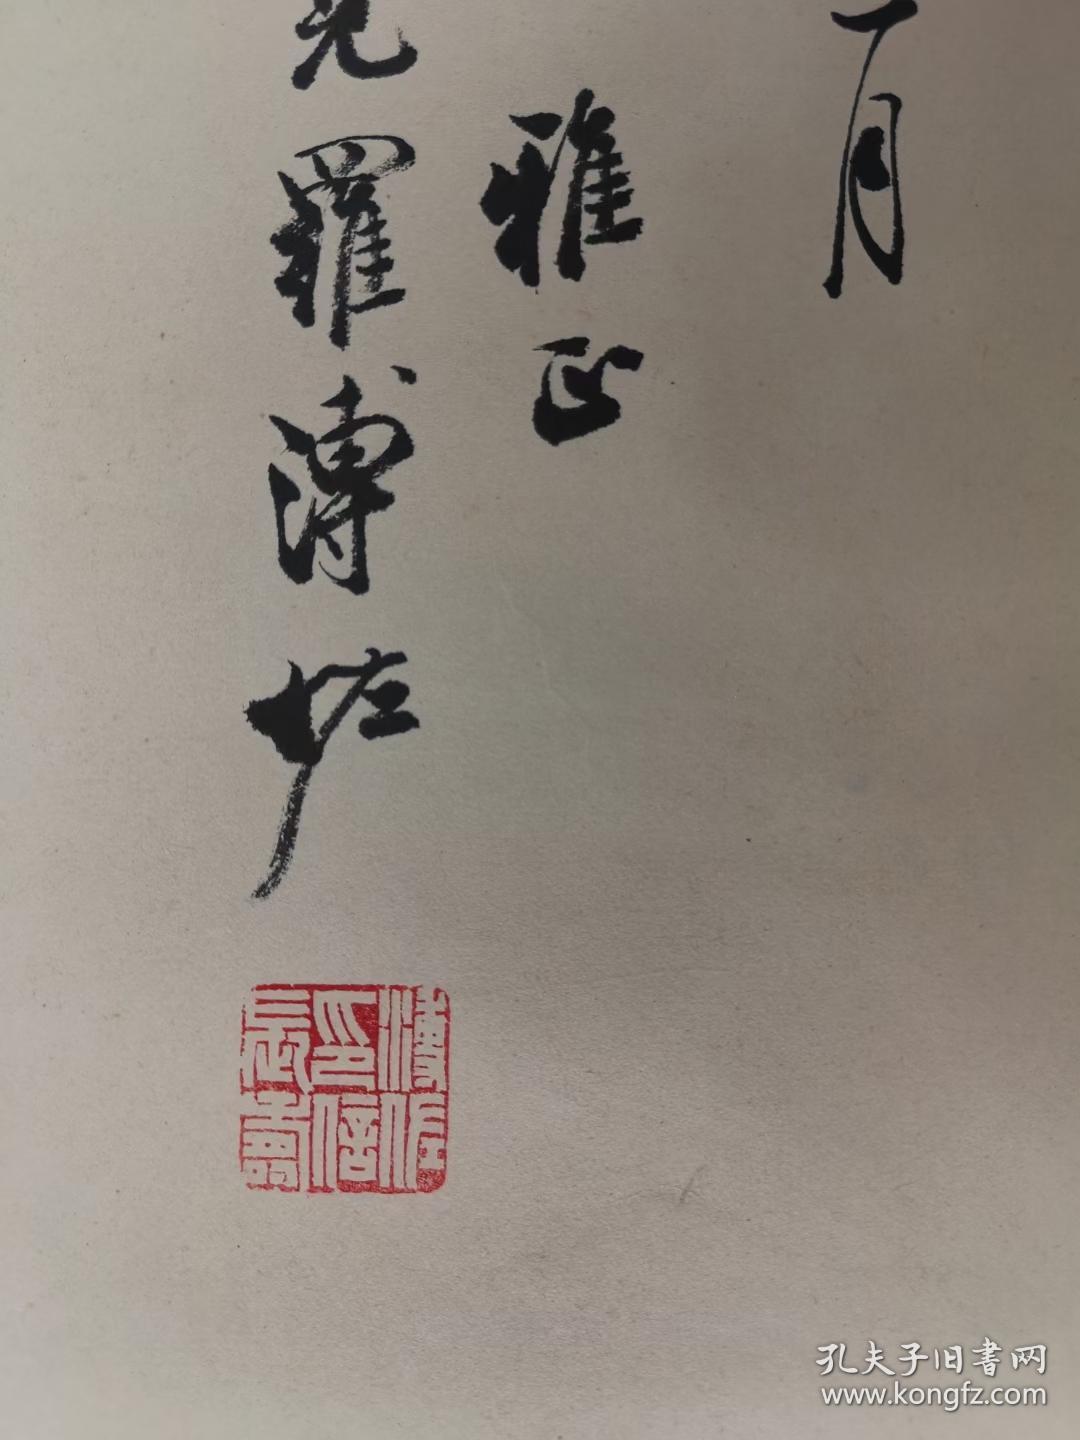 月
雅正
羅溥佐
溥佐
印信
長壽
孔夫子旧書网
www.kongfz.com